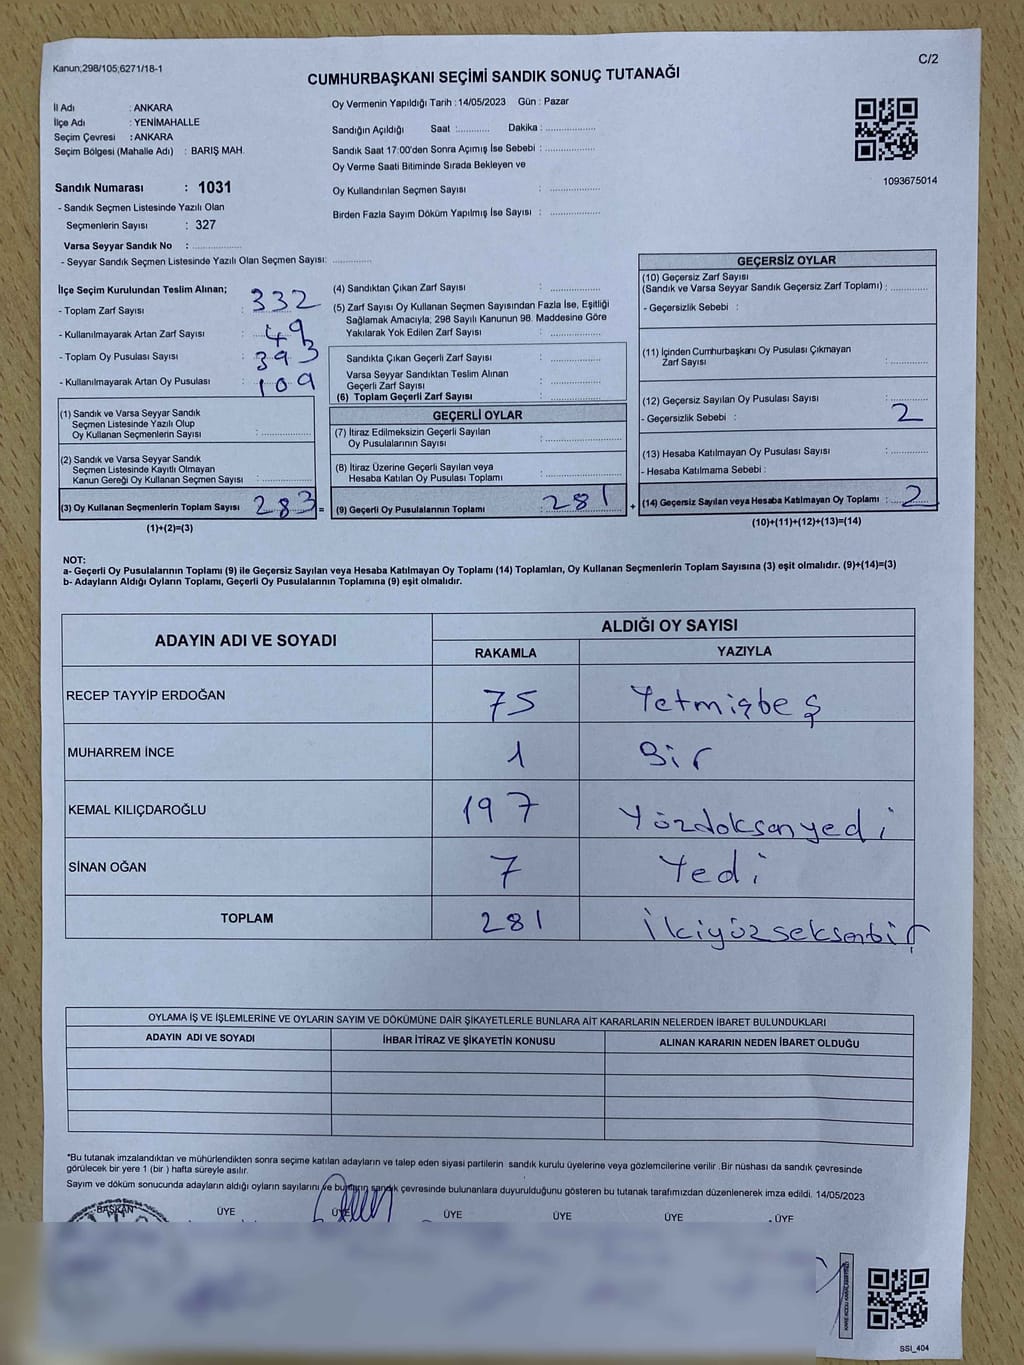 Kanun;298/105;6271/18-1
C/2
CUMHURBAŞKANI SEÇİMİ SANDIK SONUÇ TUTANAĞI
İl Adı : ANKARA
İlçe Adı : YENİMAHALLE
Seçim Çevresi : ANKARA
Seçim Bölgesi (Mahalle Adı) : BARIŞ MAH.
Sandık Numarası : 1031
- Sandık Seçmen Listesinde Yazılı Olan
Seçmenlerin Sayısı : 327
Varsa Seyyar Sandık No : ..............
- Seyyar Sandık Seçmen Listesinde Yazılı Olan Seçmen Sayısı: ............
Oy Vermenin Yapıldığı Tarih : 14/05/2023 Gün : Pazar
Sandığın Açıldığı Saat :........... Dakika : ................
Sandık Saat 17:00'den Sonra Açımış İse Sebebi : ................
Oy Verme Saati Bitiminde Sırada Bekleyen ve
Oy Kullandırılan Seçmen Sayısı : ................
Birden Fazla Sayım Döküm Yapılmış İse Sayısı : ................
1093675014
İlçe Seçim Kurulundan Teslim Alınan;
- Toplam Zarf Sayısı : 332
- Kullanılmayarak Artan Zarf Sayısı : 49
- Toplam Oy Pusulası Sayısı : 393
- Kullanılmayarak Artan Oy Pusulası : 109
(1) Sandık ve Varsa Seyyar Sandık
Seçmen Listesinde Yazılı Olup
Oy Kullanan Seçmenlerin Sayısı : ................
(2) Sandık ve Varsa Seyyar Sandık
Seçmen Listesinde Kayıtlı Olmayan
Kanun Gereği Oy Kullanan Seçmen Sayısı : ................
(3) Oy Kullanan Seçmenlerin Toplam Sayısı : 283 =
(1)+(2)=(3)
(4) Sandıktan Çıkan Zarf Sayısı : ................
(5) Zarf Sayısı Oy Kullanan Seçmen Sayısından Fazla İse, Eşitliği
Sağlamak Amacıyla; 298 Sayılı Kanunun 98. Maddesine Göre
Yakılarak Yok Edilen Zarf Sayısı : ................
Sandıkta Çıkan Geçerli Zarf Sayısı : ................
Varsa Seyyar Sandıktan Teslim Alınan
Geçerli Zarf Sayısı : ................
(6) Toplam Geçerli Zarf Sayısı : ................
GEÇERLİ OYLAR
(7) İtiraz Edilmeksizin Geçerli Sayılan
Oy Pusulalarının Sayısı : ................
(8) İtiraz Üzerine Geçerli Sayılan veya
Hesaba Katılan Oy Pusulası Toplamı : ................
(9) Geçerli Oy Pusulalarının Toplamı : 281 +
GEÇERSİZ OYLAR
(10) Geçersiz Zarf Sayısı
(Sandık ve Varsa Seyyar Sandık Geçersiz Zarf Toplamı) : ............
- Geçersizlik Sebebi :
(11) İçinden Cumhurbaşkanı Oy Pusulası Çıkmayan
Zarf Sayısı : ............
(12) Geçersiz Sayılan Oy Pusulası Sayısı : ............
- Geçersizlik Sebebi : 2
(13) Hesaba Katılmayan Oy Pusulası Sayısı : ............
- Hesaba Katılmama Sebebi :
(14) Geçersiz Sayılan veya Hesaba Katılmayan Oy Toplamı : 2
(10)+(11)+(12)+(13)=(14)
NOT:
a- Geçerli Oy Pusulalarının Toplamı (9) ile Geçersiz Sayılan veya Hesaba Katılmayan Oy Toplamı (14) Toplamları, Oy Kullanan Seçmenlerin Toplam Sayısına (3) eşit olmalıdır. (9)+(14)=(3)
b- Adayların Aldığı Oyların Toplamı, Geçerli Oy Pusulalarının Toplamına (9) eşit olmalıdır.
ADAYIN ADI VE SOYADI
ALDIĞI OY SAYISI
RAKAMLA YAZIYLA
RECEP TAYYİP ERDOĞAN 75 Yetmişbeş
MUHARREM İNCE 1 Bir
KEMAL KILIÇDAROĞLU 197 Yüzdoksanyedi
SİNAN OĞAN 7 Yedi
TOPLAM 281 İkiyüzseksenbir
OYLAMA İŞ VE İŞLEMLERİNE VE OYLARIN SAYIM VE DÖKÜMÜNE DAİR ŞİKAYETLERLE BUNLARA AİT KARARLARIN NELERDEN İBARET BULUNDUKLARI
ADAYIN ADI VE SOYADI İHBAR İTİRAZ VE ŞİKAYETİN KONUSU ALINAN KARARIN NEDEN İBARET OLDUĞU
*Bu tutanak imzalandıktan ve mühürlendikten sonra seçime katılan adayların ve talep eden siyasi partilerin sandık kurulu üyelerine veya gözlemcilerine verilir .Bir nüshası da sandık çevresinde
görülecek bir yere 1 (bir ) hafta süreyle asılır.
Sayım ve döküm sonucunda adayların aldığı oyların sayılarını ve bunların sandık çevresinde bulunanlara duyurulduğunu gösteren bu tutanak tarafımızdan düzenlenerek imza edildi. 14/05/2023
BAŞKAN ÜYE ÜYE ÜYE ÜYE ÜYE ÜYE
SSI_404